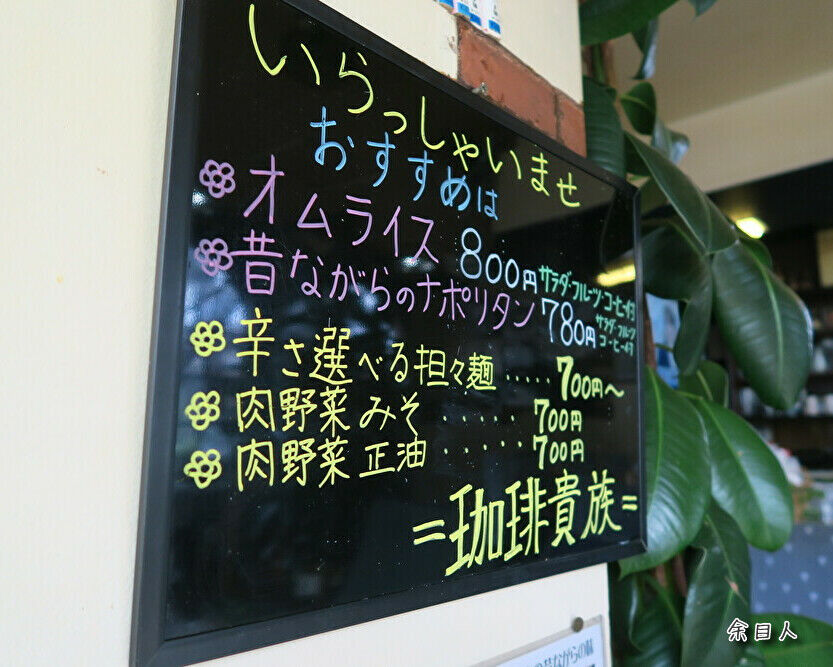 いらっしゃいませ
おすすめは
オムライス 800円 サラダ・フルーツ・コーヒー付
昔ながらのナポリタン 780円 サラダ・フルーツ
コーヒー付
辛さ選べる担々麺 ····· 700円〜
肉野菜 みそ ····· 700円
肉野菜 正油 ····· 700円
=珈琲貴族=
の昔ながらの味
余目人